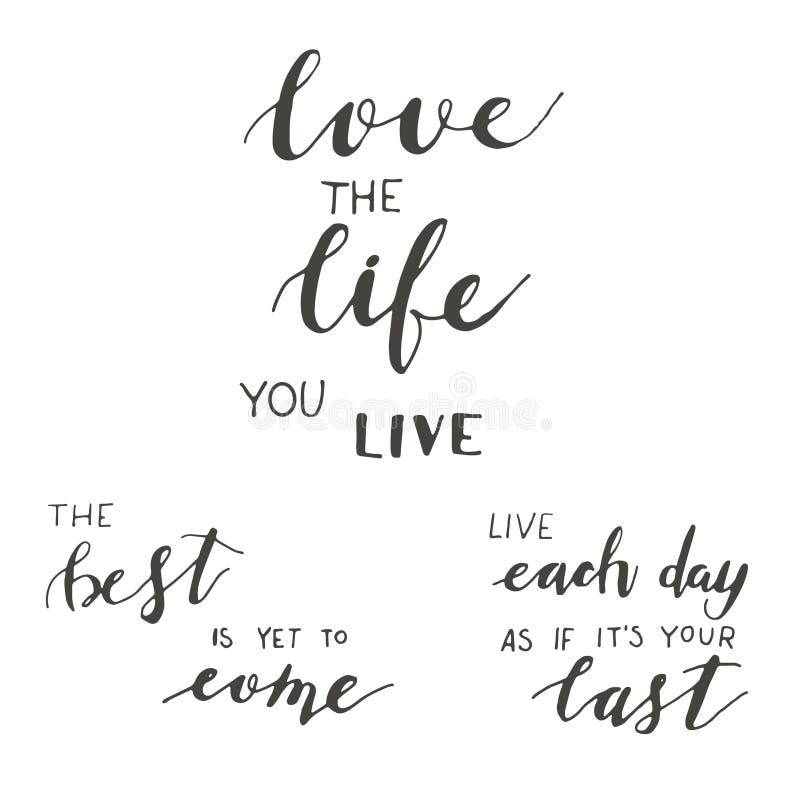 love
THE
life
YOU
LIVE
THE
best
IS YET TO
come
LIVE
each day
AS IF IT'S YOUR
last